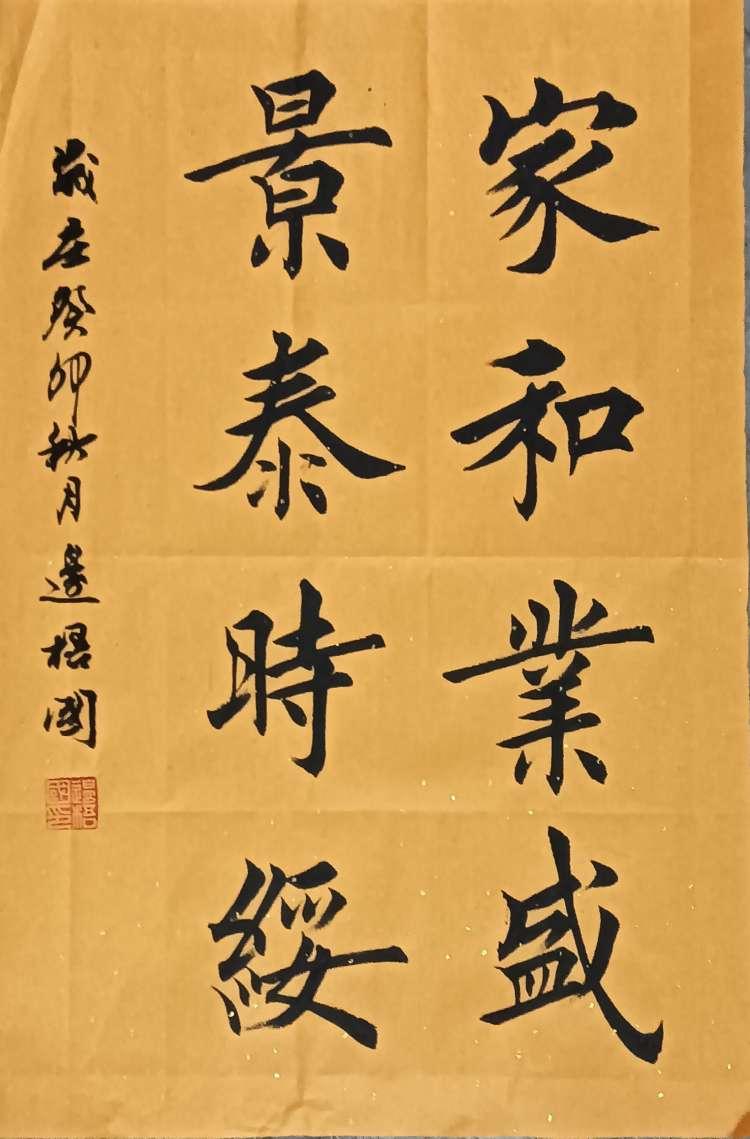 家和業盛
景泰時綏
歲在癸卯秋月邊梧國